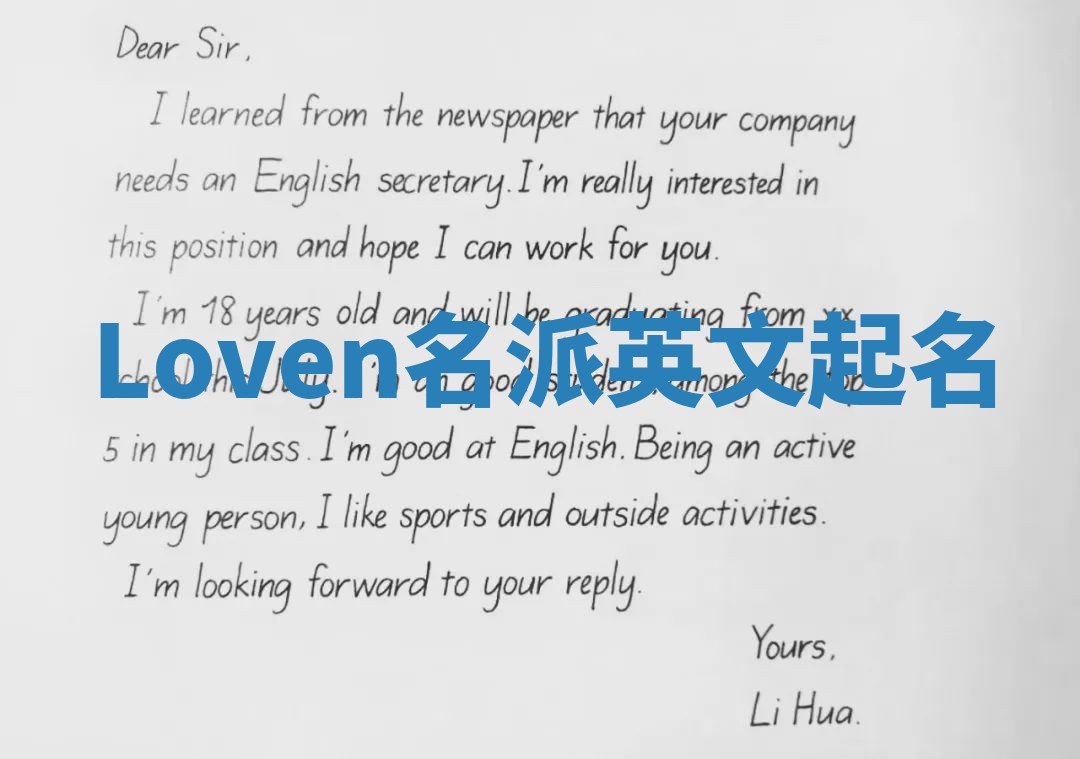 Dear Sir,
I learned from the newspaper that your company
needs an English secretary. I'm really interested in
this position and hope I can work for you.
I'm 18 years old and will be graduating from xx
Loven名派英文起名
school this July. I'm an good student, among the top
5 in my class. I'm good at English. Being an active
young person, I like sports and outside activities.
I'm looking forward to your reply.
Yours,
Li Hua.